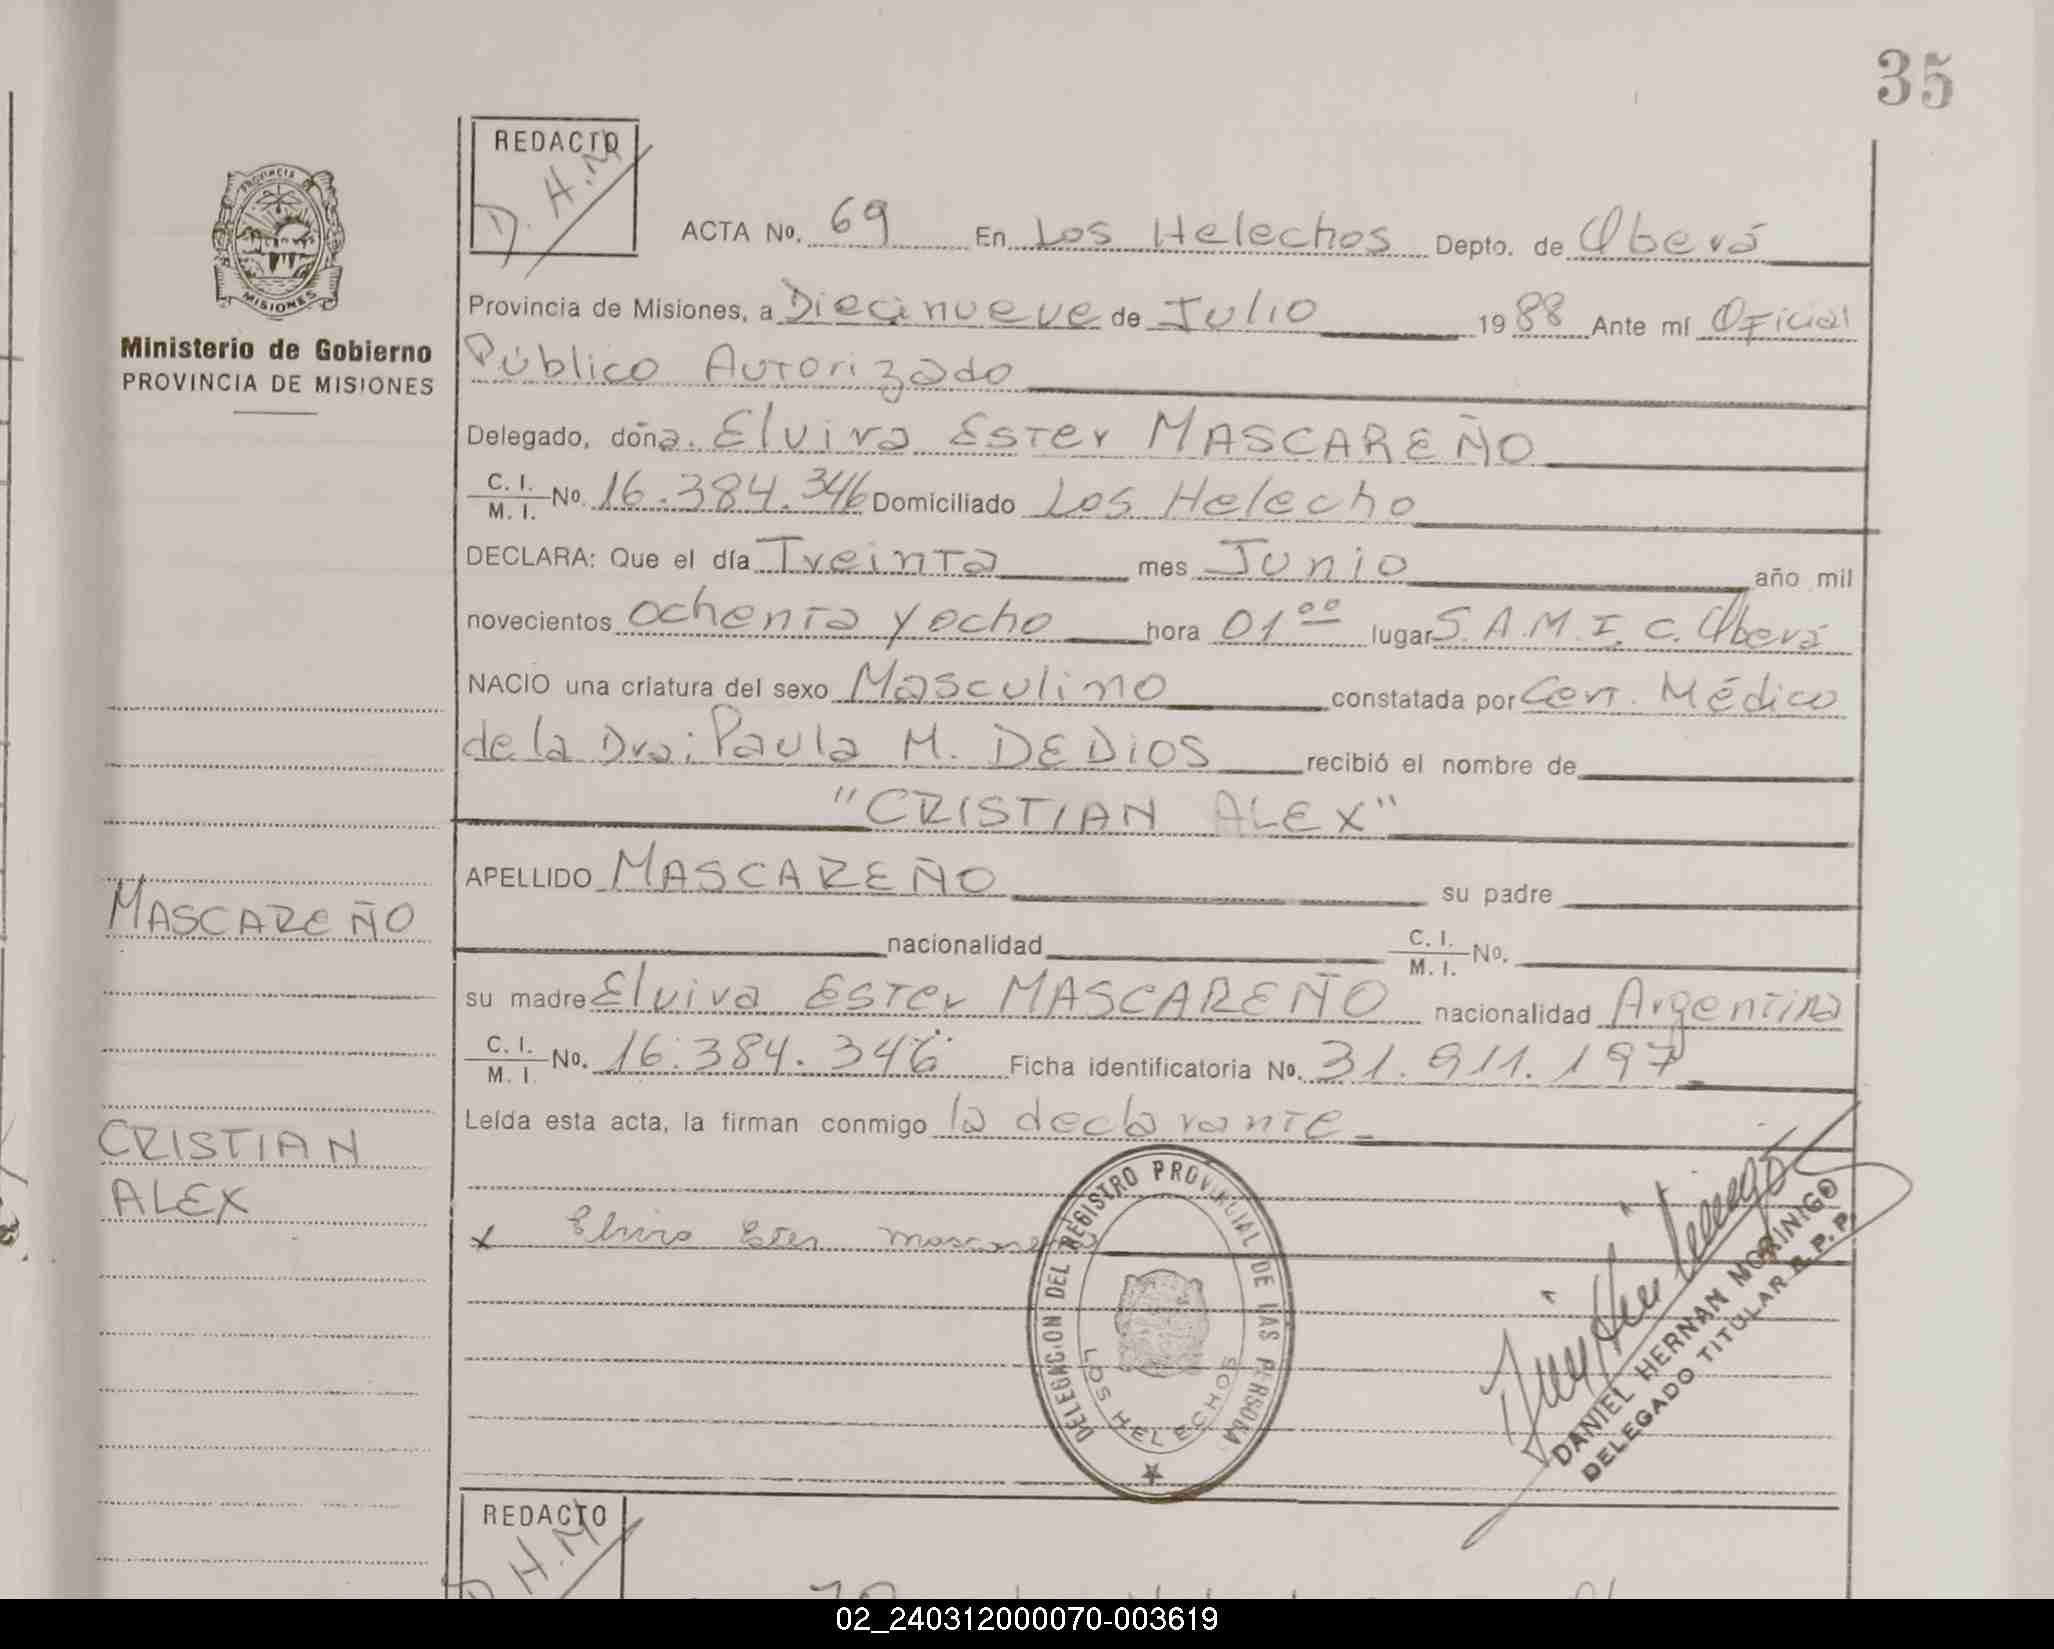 35
REDACTO
D. H.M
PROVINCIA
MISIONES
Ministerio de Gobierno
PROVINCIA DE MISIONES
ACTA No. 69 En Los Helechos Depto. de Oberá
Provincia de Misiones, a Diecinueve de Julio 1988 Ante mí Oficial
Público Autorizado
Delegado, doña. Elvira Ester MASCAREÑO
C. I. / M. I. No. 16.384.346 Domiciliado Los Helecho
DECLARA: Que el día Treinta mes Junio año mil
novecientos ochenta y ocho hora 01⁰⁰ lugar S.A.M.I.C. Oberá
NACIO una criatura del sexo Masculino constatada por Cert. Médico
de la Dra; Paula M. DEDIOS recibió el nombre de
"CRISTIAN ALEX"
APELLIDO MASCAREÑO su padre
nacionalidad C. I. / M. I. No.
su madre Elvira Ester MASCAREÑO nacionalidad Argentina
C. I. / M. I. No. 16.384.346 Ficha identificatoria No. 31.911.197
Leída esta acta, la firman conmigo la declarante
x Elvira Ester Mascareño
MASCAREÑO
CRISTIAN
ALEX
DELEGACION DEL REGISTRO PROVINCIAL DE LAS PERSONA
LOS HELECHOS
DANIEL HERNAN MORINIGO
DELEGADO TITULAR R. P. P.
REDACTO
D. H.M
02_240312000070-003619